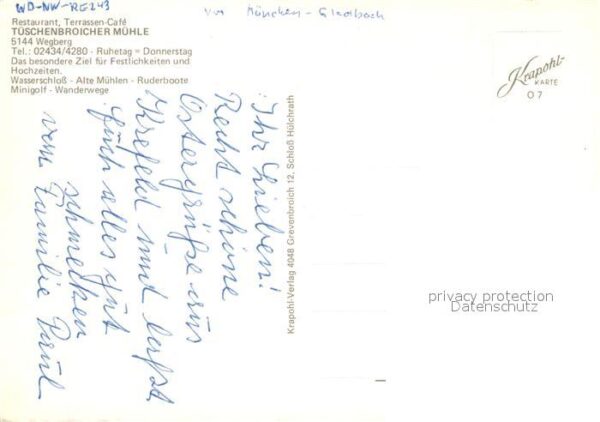 WD-NW-RE243
von München-Gladbach
Restaurant, Terrassen-Café
TÜSCHENBROICHER MÜHLE
5144 Wegberg
Tel.: 02434/4280 - Ruhetag = Donnerstag
Das besondere Ziel für Festlichkeiten und
Hochzeiten.
Wasserschloß - Alte Mühlen - Ruderboote
Minigolf - Wanderwege
Krapohl-
KARTE
O 7
Ihr Lieben!
Recht schöne
Ostergrüße aus
Krefeld und laßt
Euch alles gut
schmecken
vom Familie Paul
Krapohl-Verlag 4048 Grevenbroich 12, Schloß Hülchrath
privacy protection
Datenschutz